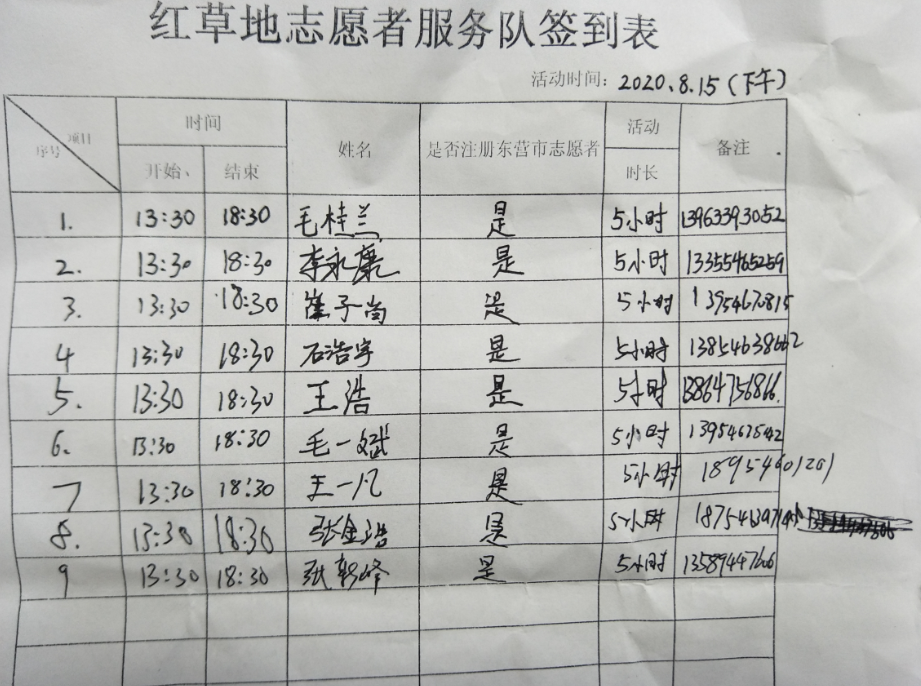 红草地志愿者服务队签到表
活动时间：2020.8.15（下午）
序号 项目 时间 姓名 是否注册东营市志愿者 活动 备注
开始、 结束 时长
1. 13:30 18:30 毛桂兰 是 5小时 13963393052
2. 13:30 18:30 李永廉 是 5小时 13355465259
3. 13:30 18:30 崔子尚 是 5小时 13954670815
4 13:30 18:30 石浩宇 是 5小时
5. 13:30 18:30 王浩 是 5小时 13864756866.
6. 13:30 18:30 毛一斌 是 5小时
7 13:30 18:30 王一凡 是 5小时 18954601201
8. 13:30 18:30 张金浩 是 5小时
9 13:30 18:30 张 峰 是 5小时 13589447666